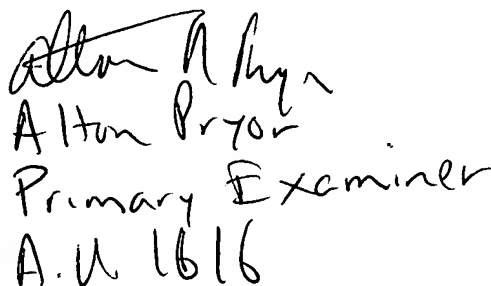 Alton N Pryor
Alton Pryor
Primary Examiner
A.U 1616